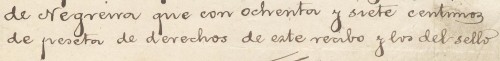 de Negreira que con ochenta y siete centimos
de peseta de derechos de este recibo y los del sello